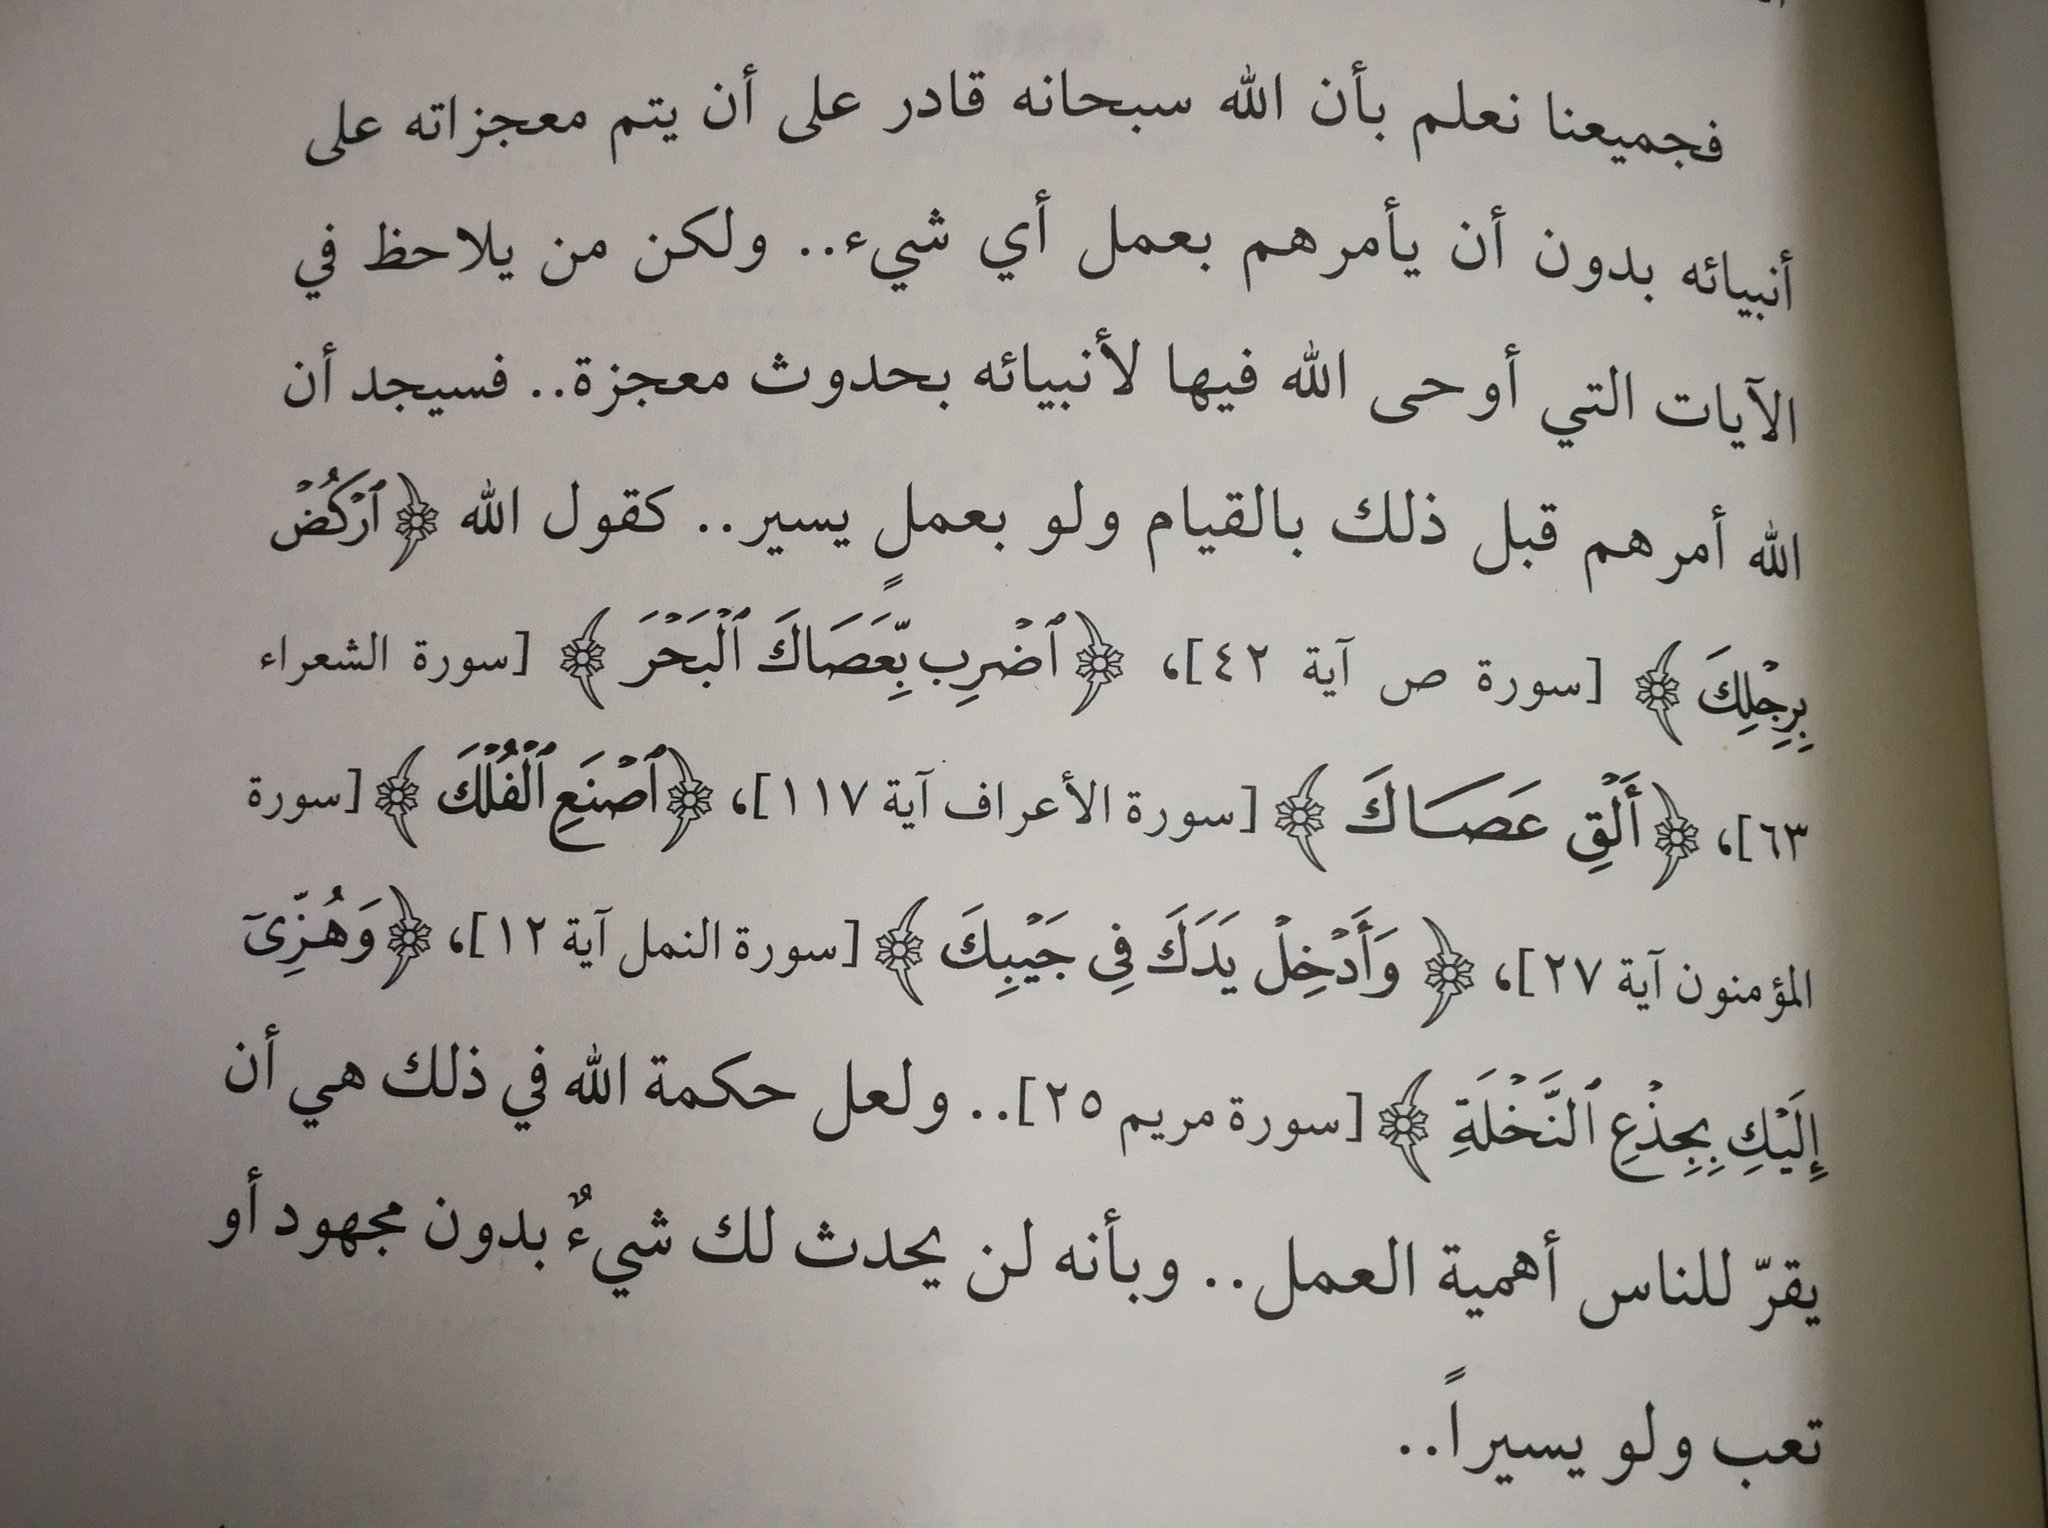 فجميعنا نعلم بأن الله سبحانه قادر على أن يتم معجزاته على
أنبيائه بدون أن يأمرهم بعمل أي شيء.. ولكن من يلاحظ في
الآيات التي أوحى الله فيها لأنبيائه بحدوث معجزة.. فسيجد أن
الله أمرهم قبل ذلك بالقيام ولو بعملٍ يسير.. كقول الله ﴿ٱرْكُضْ
بِرِجْلِكَ﴾ [سورة ص آية ٤٢]، ﴿ٱضْرِب بِّعَصَاكَ ٱلْبَحْرَ﴾ [سورة الشعراء
٦٣]، ﴿أَلْقِ عَصَاكَ﴾ [سورة الأعراف آية ١١٧]، ﴿ٱصْنَعِ ٱلْفُلْكَ﴾ [سورة
المؤمنون آية ٢٧]، ﴿وَأَدْخِلْ يَدَكَ فِى جَيْبِكَ﴾ [سورة النمل آية ١٢]، ﴿وَهُزِّىٓ
إِلَيْكِ بِجِذْعِ ٱلنَّخْلَةِ﴾ [سورة مريم ٢٥].. ولعل حكمة الله في ذلك هي أن
يقرّ للناس أهمية العمل.. وبأنه لن يحدث لك شيءٌ بدون مجهود أو
تعب ولو يسيراً..